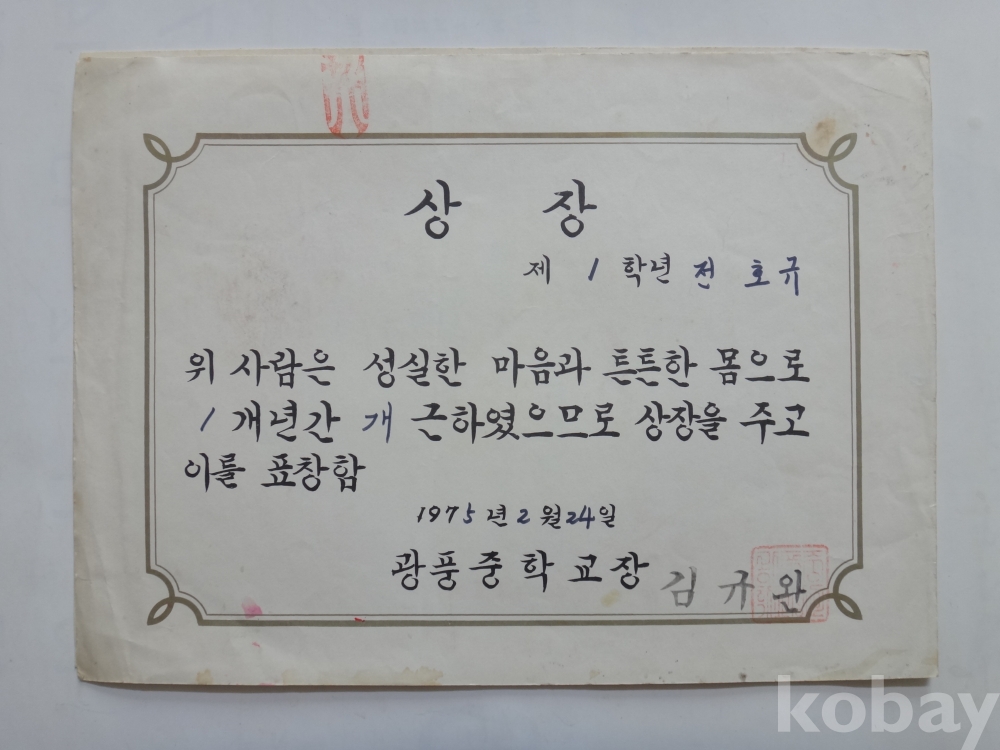 상 장
제 1 학년 전 호규
위 사람은 성실한 마음과 튼튼한 몸으로
1 개년간 개 근하였으므로 상장을 주고
이를 표창함
1975년 2월 24일
광풍중학교장 김규완
kobay